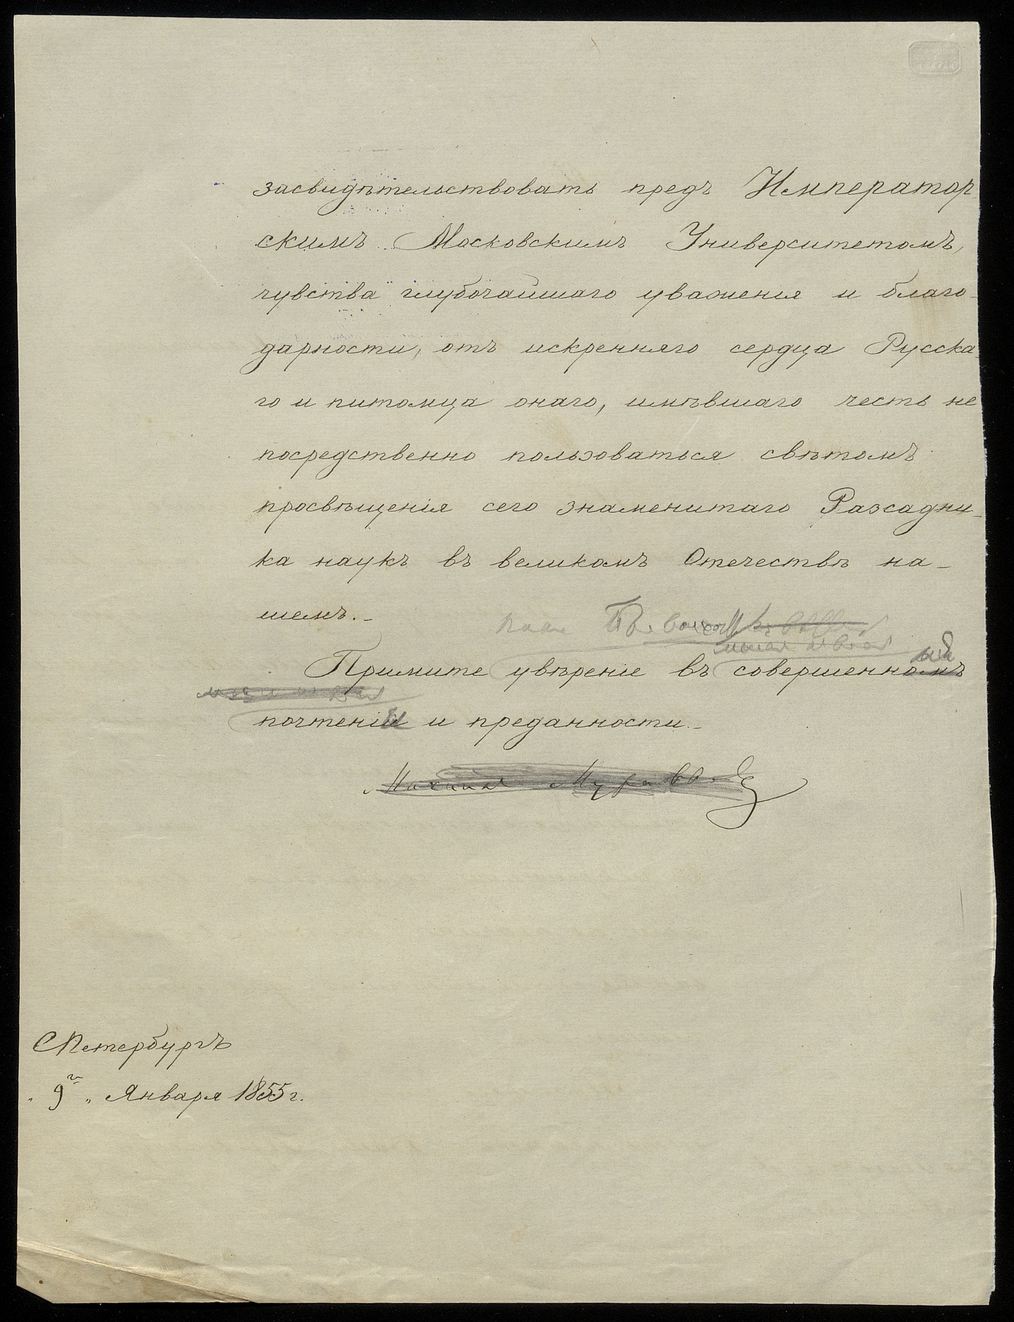 засвидѣтельствовать предъ Император
скимъ Московскимъ Университетомъ,
чувства глубочайшаго уваженія и благо-
дарности, отъ искренняго сердца Русска
го и питомца онаго, имѣвшаго честь не
посредственно пользоваться свѣтомъ
просвѣщенія сего знаменитаго Разсадни-
ка наукъ въ великомъ Отечествѣ на-
шемъ.-
Примите увѣреніе въ совершенномъ
почтеніи и преданности.-
Михаилъ
СПетербургъ
"9го" Января 1855 г.